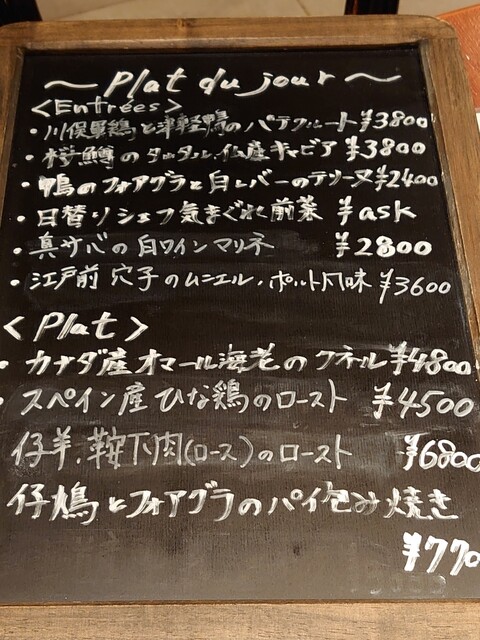 ～Plat du jour～
<Entrées>
・川俣軍鶏と津軽鴨のパテクルート¥3800
・桜鱒のタルタル仏産キャビア ¥3800
・鴨のフォアグラと白レバーのテリーヌ¥2400
・日替りシェフ気まぐれ前菜 ¥ask
・真サバの白ワインマリネ ¥2800
・江戸前穴子のムニエル・ポルト風味 ¥3600
<Plat>
・カナダ産オマール海老のクネル¥4800
・スペイン産ひな鶏のロースト ¥4500
仔羊.鞍下肉(ロース)のロースト ¥6800
仔鳩とフォアグラのパイ包み焼き
¥770